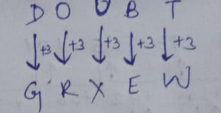 D O U B T
+3 +3 +3 +3 +3
G R X E W